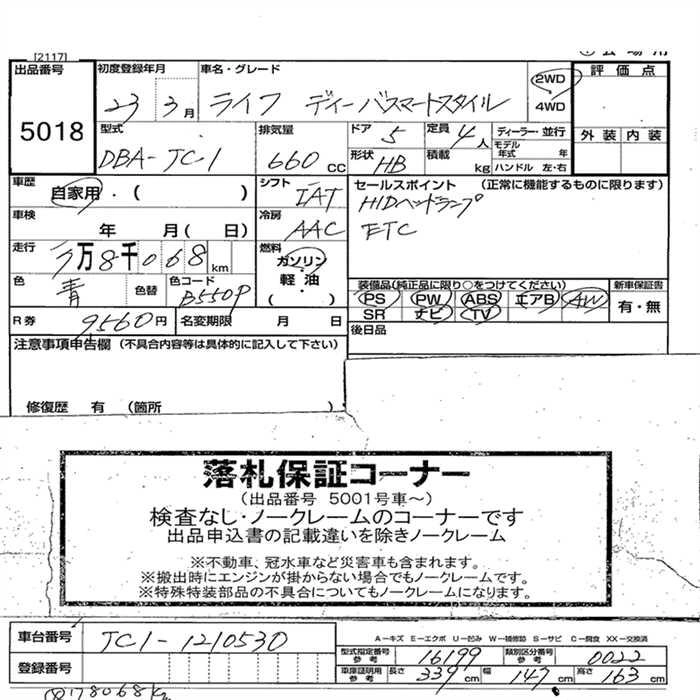 [2117]
出品番号
5018
初度登録年月
23 3月
車名・グレード
ライフ ディーバスマートスタイル
2WD
4WD
評価点
外装 内装
型式
DBA-JC1
排気量
660 CC
ドア 5
定員 4人
形状 HB
積載 kg
ディーラー・並行
モデル年式 年
ハンドル 左・右
車歴
自家用・( )
シフト
IAT
セールスポイント (正常に機能するものに限ります)
HIDヘッドランプ
ETC
車検
年 月( 日)
冷房
AAC
走行
7万8千068km
燃料
ガソリン
軽・油
( )
色
青
色替
色コード
B550P
装備品(純正品に限り○をつけてください)
PS PW ABS エアB AW
SR ナビ TV
新車保証書
有・無
R券 9560円
名変期限 月 日
後日品
注意事項申告欄 (不具合内容等は具体的に記入して下さい)
修復歴 有 (箇所 )
落札保証コーナー
(出品番号 5001号車～)
検査なし・ノークレームのコーナーです
出品申込書の記載違いを除きノークレーム
※不動車、冠水車など災害車も含まれます。
※搬出時にエンジンが掛からない場合でもノークレームです。
※特殊特装部品の不具合についてもノークレームになります。
車台番号
JC1-1210530
A－キズ E－エクボ U－凹み W－補修跡 S－サビ C－腐食 XX－交換済
型式指定番号 参考 16199
類別区分番号 参考 0022
登録番号
車庫証明用 参考 長さ 339cm 幅 147cm 高さ 163cm
78068K